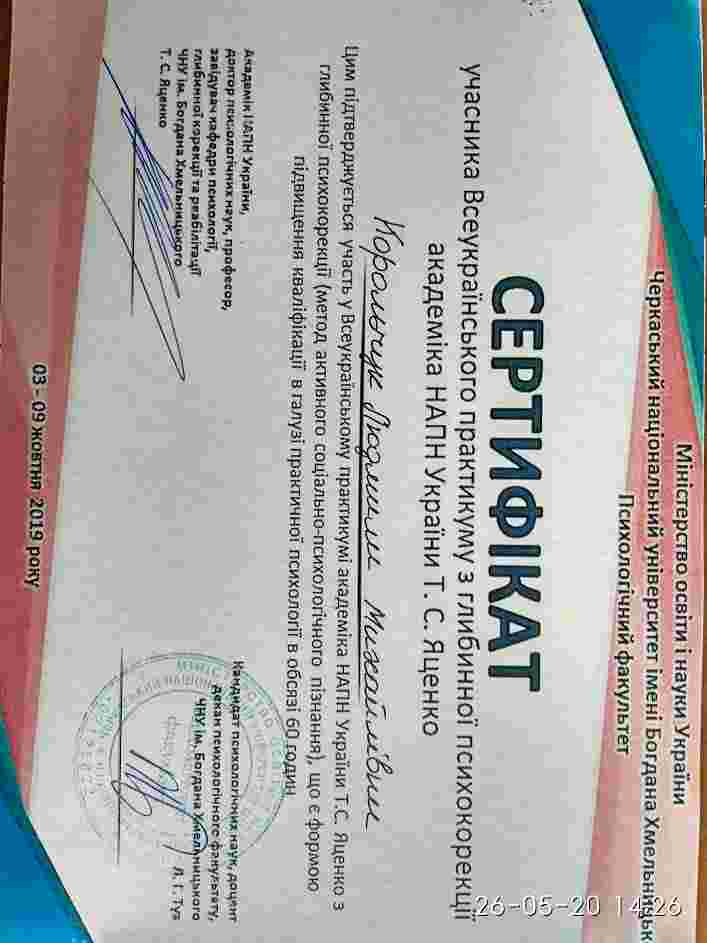 Міністерство освіти і науки України
Черкаський національний університет імені Богдана Хмельницьк
Психологічний факультет
26-05-20 14:26
СЕРТИФІКАТ
учасника Всеукраїнського практикуму з глибинної психокорекції
академіка НАПН України Т. С. Яценко
Корольчук Людмили Михайлівни
Цим підтверджується участь у Всеукраїнському практикумі академіка НАПН України Т.С. Яценко з
глибинної психокорекції (метод активного соціально-психологічного пізнання), що є формою
підвищення кваліфікації в галузі практичної психології в обсязі 60 годин
Академік НАПН України,
доктор психологічних наук, професор,
завідувач кафедри психології,
глибинної корекції та реабілітації
ЧНУ ім. Богдана Хмельницького
Т. С. Яценко
Кандидат психологічних наук, доцент
декан психологічного факультету,
ЧНУ ім. Богдана Хмельницького
Л. Г. Туз
03 - 09 жовтня 2019 року